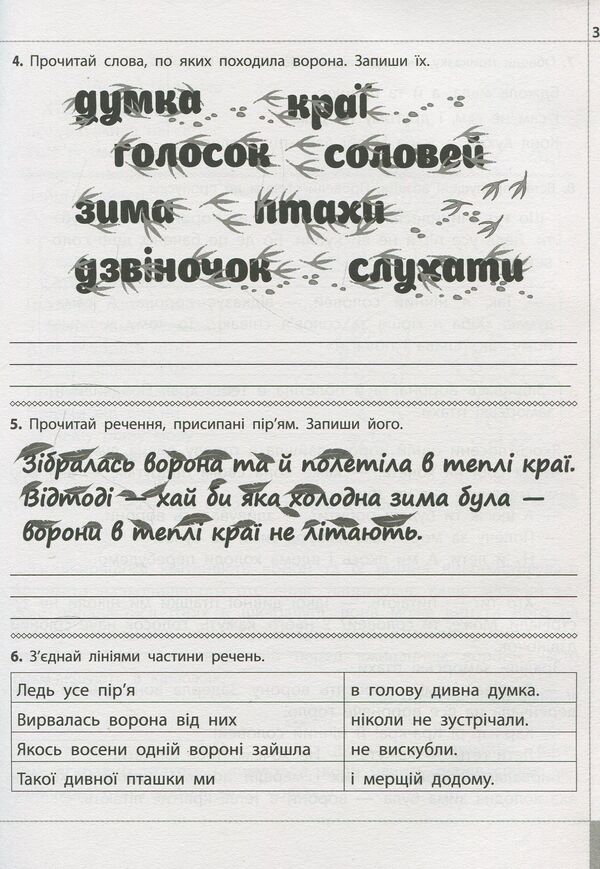 3
4. Прочитай слова, по яких походила ворона. Запиши їх.
думка краї
голосок соловей
зима птахи
дзвіночок слухати
5. Прочитай речення, присипані пір’ям. Запиши його.
Зібралась ворона та й полетіла в теплі краї.
Відтоді — хай би яка холодна зима була —
ворони в теплі краї не літають.
6. З’єднай лініями частини речень.
Ледь усе пір’я в голову дивна думка.
Вирвалась ворона від них ніколи не зустрічали.
Якось восени одній вороні зайшла не вискубли.
Такої дивної пташки ми і мерщій додому.